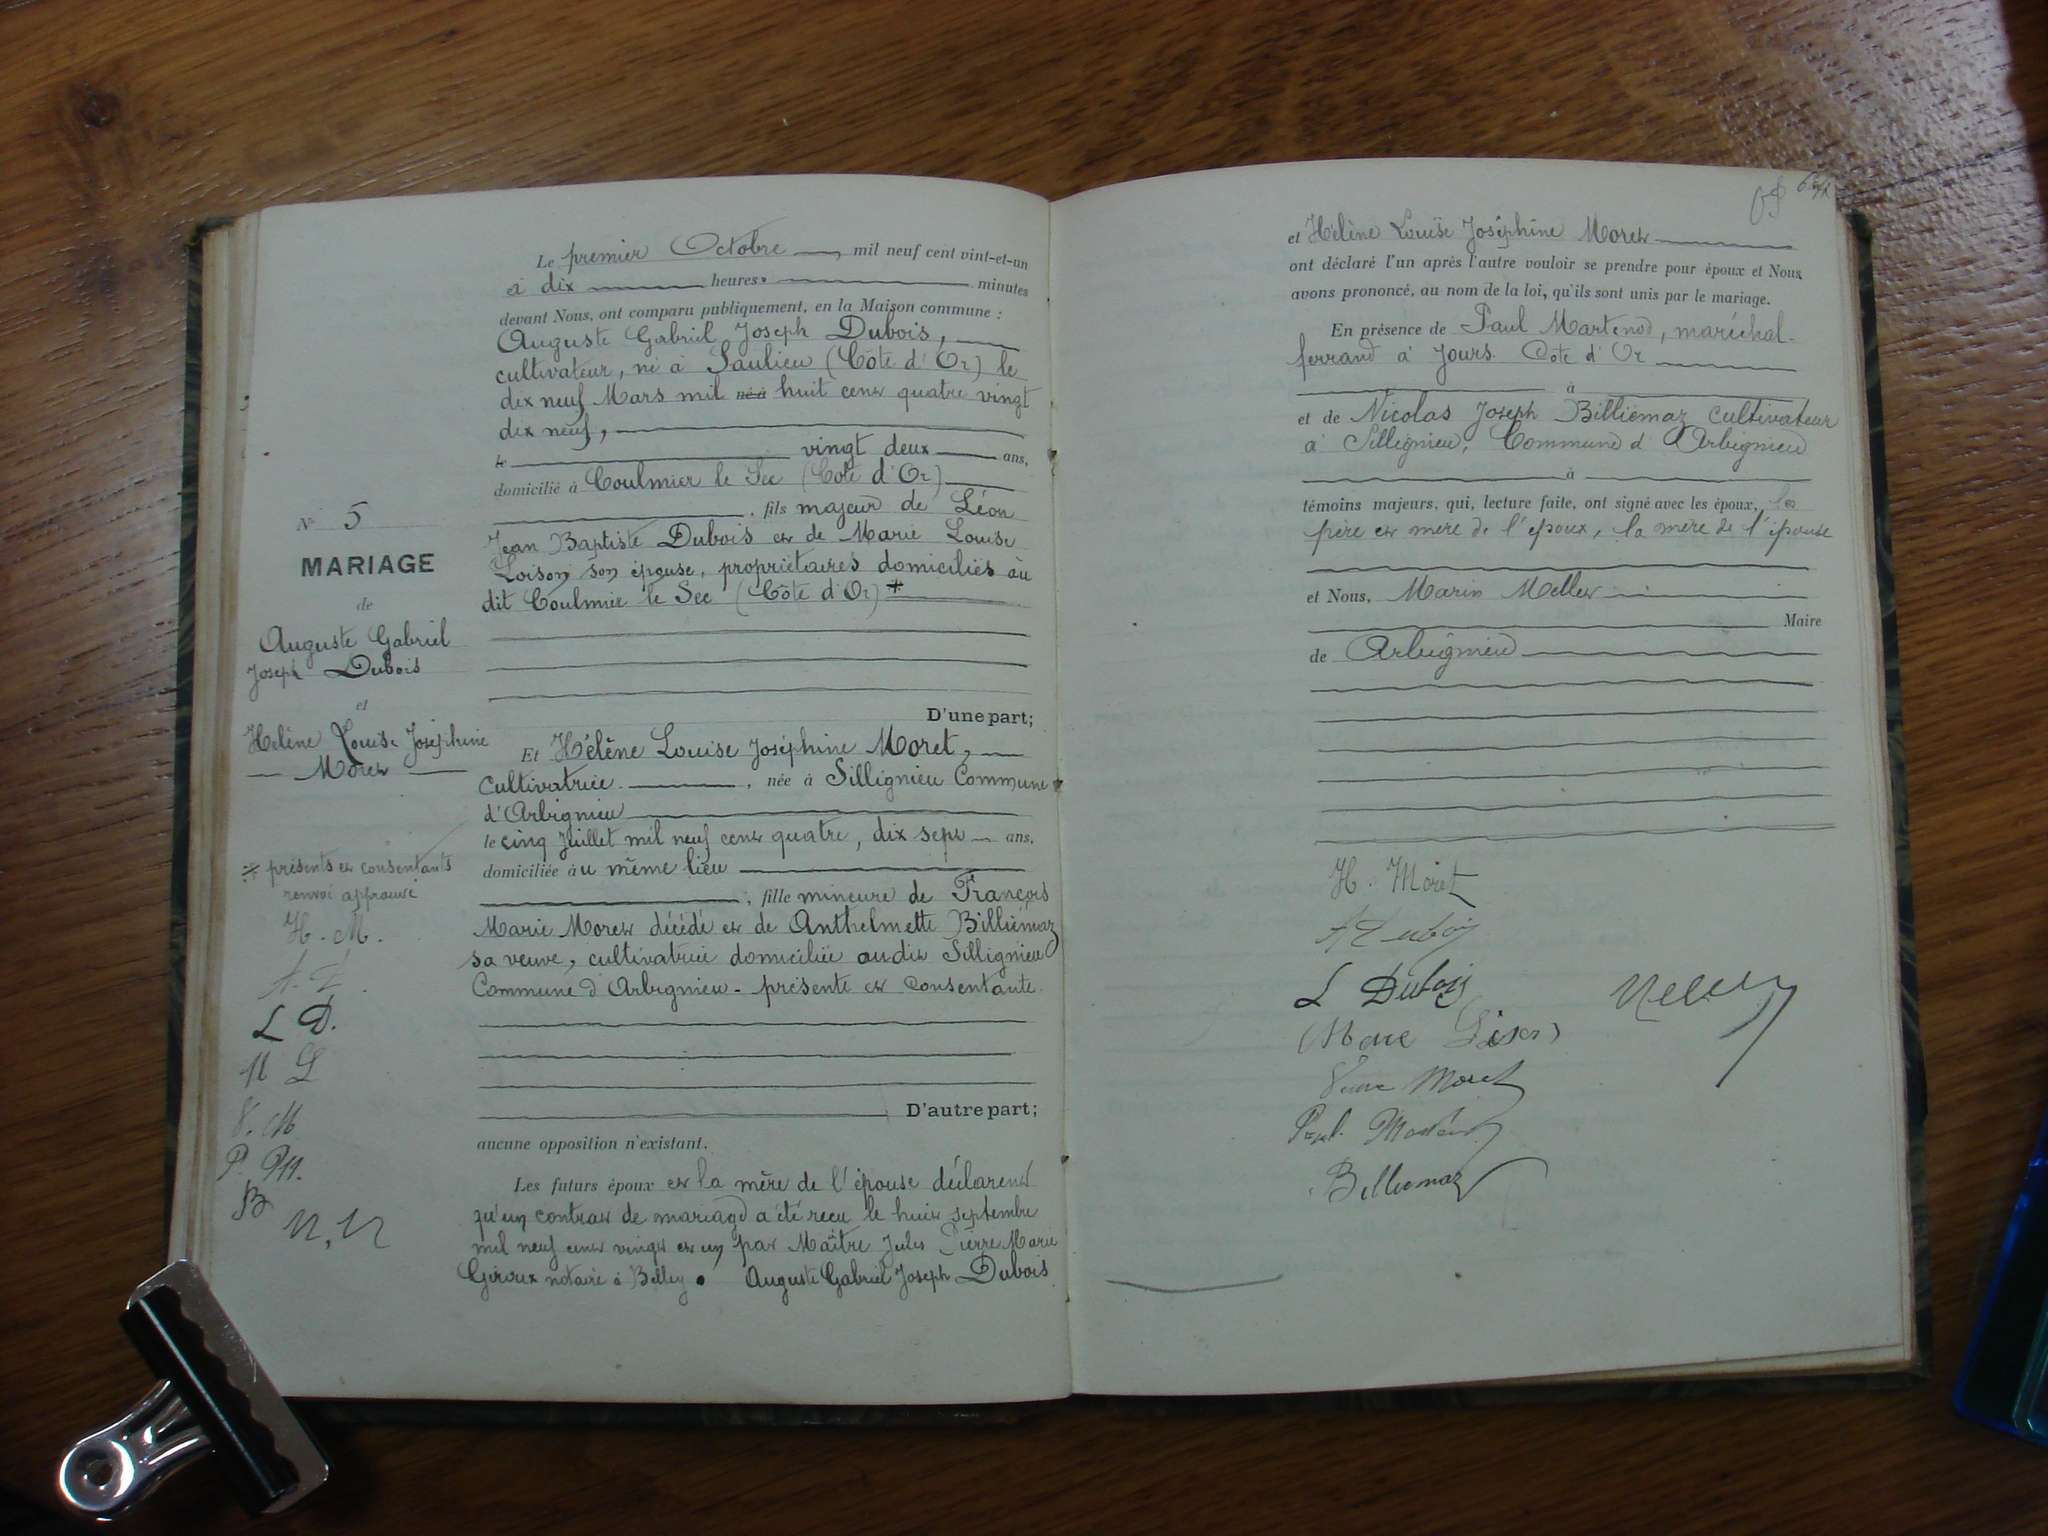 N° 5
MARIAGE
de
Auguste Gabriel
Joseph Dubois
et
Hélène Louise Joséphine
Moret
* présents et consentants
renvoi approuvé
H. M.
A. D.
L D.
M L
V. M
P. M.
B
Le premier Octobre mil neuf cent vint-et-un
à dix heures minutes
devant Nous, ont comparu publiquement, en la Maison commune :
Auguste Gabriel Joseph Dubois,
cultivateur, né à Saulieu (Côte d'Or) le
dix neuf Mars mil né à huit cent quatre vingt
dix neuf,
le vingt deux ans,
domicilié à Coulmier le Sec (Côte d'Or)
, fils majeur de Léon
Jean Baptiste Dubois et de Marie Louise
Loison son épouse, propriétaires domiciliés au
dit Coulmier le Sec (Côte d'Or) *
D'une part;
Et Hélène Louise Joséphine Moret,
cultivatrice , née à Sillignieu Commune
d'Arbignieu
le cinq Juillet mil neuf cent quatre, dix sept ans,
domiciliée au même lieu
, fille mineure de François
Marie Moret décédé et de Anthelmette Billiémaz
sa veuve, cultivatrice domiciliée audit Sillignieu
Commune d'Arbignieu - présente et consentante.
D'autre part;
aucune opposition n'existant.
Les futurs époux et la mère de l'épouse déclarent
qu'un contrat de mariage a été reçu le huit septembre
mil neuf cent vingt et un par Maître Jules Pierre Marie
notaire à Belley. Auguste Gabriel Joseph Dubois
et Hélène Louise Joséphine Moret
ont déclaré l'un après l'autre vouloir se prendre pour époux et Nous
avons prononcé, au nom de la loi, qu'ils sont unis par le mariage.
En présence de Paul Martenod, maréchal-
ferrand à Jours Côte d'Or
à
et de Nicolas Joseph Billiemaz cultivateur
à Sillignieu, Commune d'Arbignieu
à
témoins majeurs, qui, lecture faite, ont signé avec les époux, les
père et mère de l'époux, la mère de l'épouse
et Nous, Marin Mellet
Maire
de Arbignieu
H. Moret
A Dubois
L Dubois
Veuve Moret
Paul Martenod
Billiemaz